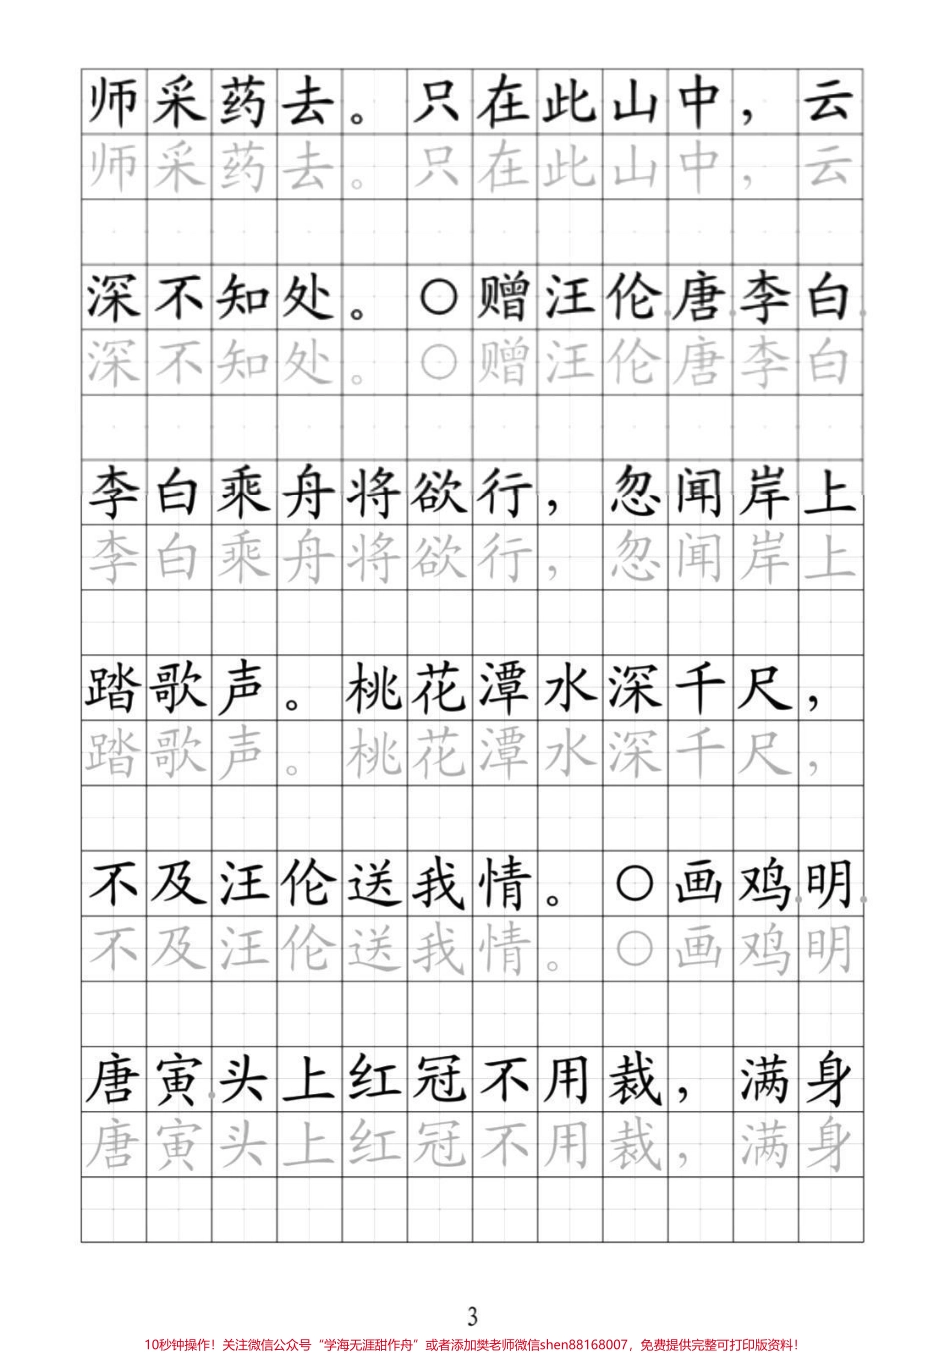 师采药去。只在此山中，云
师采药去。只在此山中，云
深不知处。○赠汪伦唐李白
深不知处。○赠汪伦唐李白
李白乘舟将欲行，忽闻岸上
李白乘舟将欲行，忽闻岸上
踏歌声。桃花潭水深千尺，
踏歌声。桃花潭水深千尺，
不及汪伦送我情。○画鸡明
不及汪伦送我情。○画鸡明
唐寅头上红冠不用裁，满身
唐寅头上红冠不用裁，满身
3
10秒钟操作！关注微信公众号“学海无涯甜作舟”或者添加樊老师微信shen88168007，免费提供完整可打印版资料！